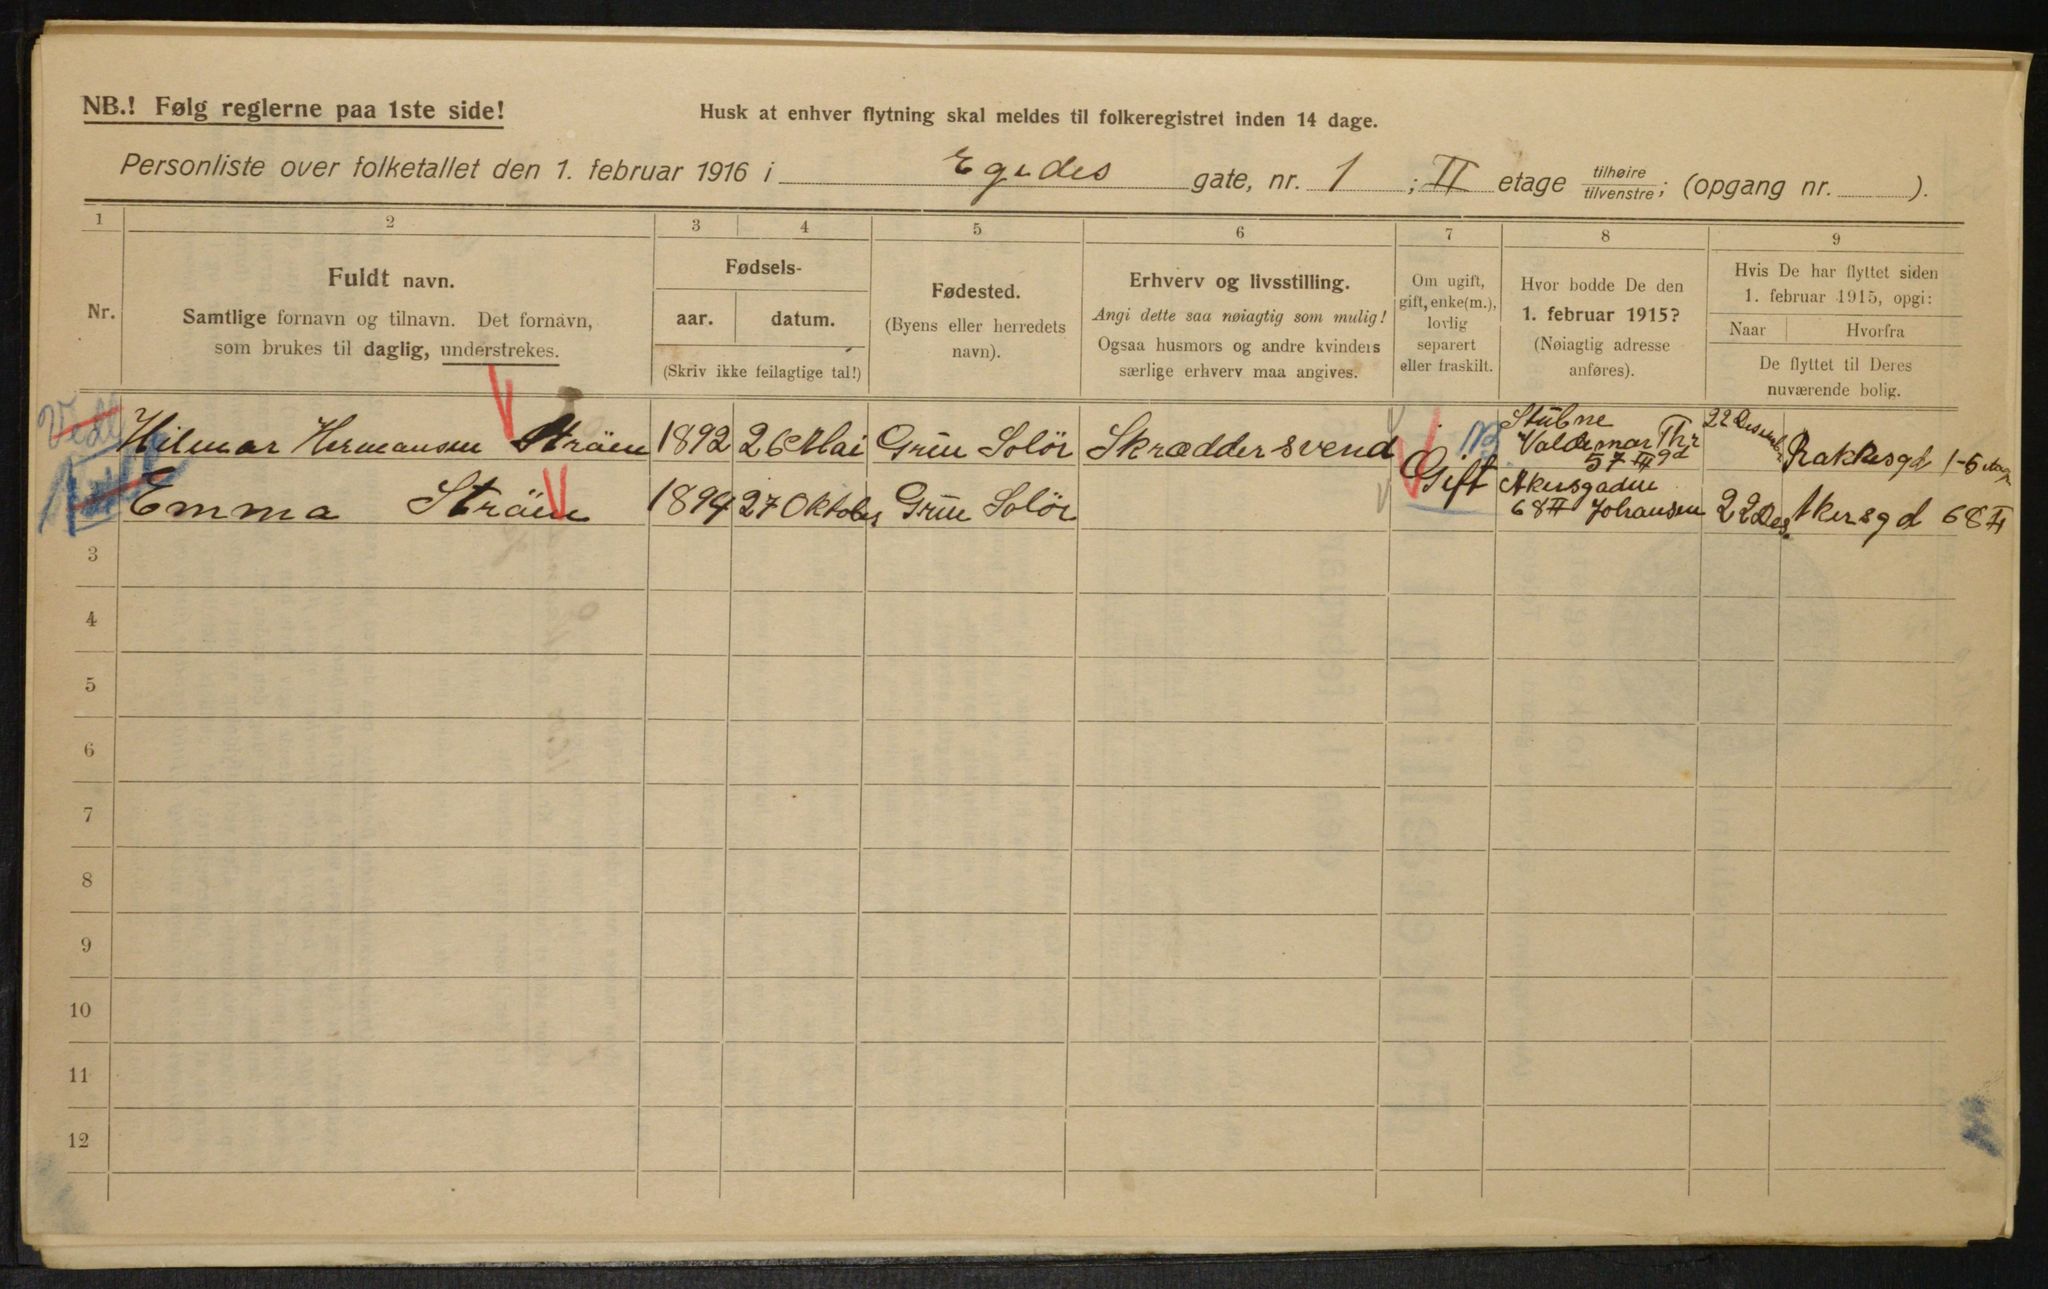 NB.! Følg reglerne paa 1ste side!
Husk at enhver flytning skal meldes til folkeregistret inden 14 dage.
Personliste over folketallet den 1. februar 1916 i Egedes gate, nr. 1 ; II etage tilhøire/tilvenstre; (opgang nr. ).
1 2 3 4 5 6 7 8 9
Nr.
Fuldt navn.
Samtlige fornavn og tilnavn. Det fornavn,
som brukes til daglig, understrekes.
Fødsels-
aar. datum.
(Skriv ikke feilagtige tal!)
Fødested.
(Byens eller herredets
navn).
Erhverv og livsstilling.
Angi dette saa nøiagtig som mulig!
Ogsaa husmors og andre kvinders
særlige erhverv maa angives.
Om ugift,
gift, enke(m.),
lovlig
separert
eller fraskilt.
Hvor bodde De den
1. februar 1915?
(Nøiagtig adresse
anføres).
Hvis De har flyttet siden
1. februar 1915, opgi:
Naar Hvorfra
De flyttet til Deres
nuværende bolig.
Hilmar Hermansen Ström 1892 26 Mai Grue Solör Skræddersvend Gift Stübne Valdemar Thr 57 III gd 22 Desember Rakkesgd 1-5
Emma Ström 1894 27 Oktober Grue Solör Akersgaden 68 II Johansen 22 Des Akersgd 68 II
3
4
5
6
7
8
9
10
11
12